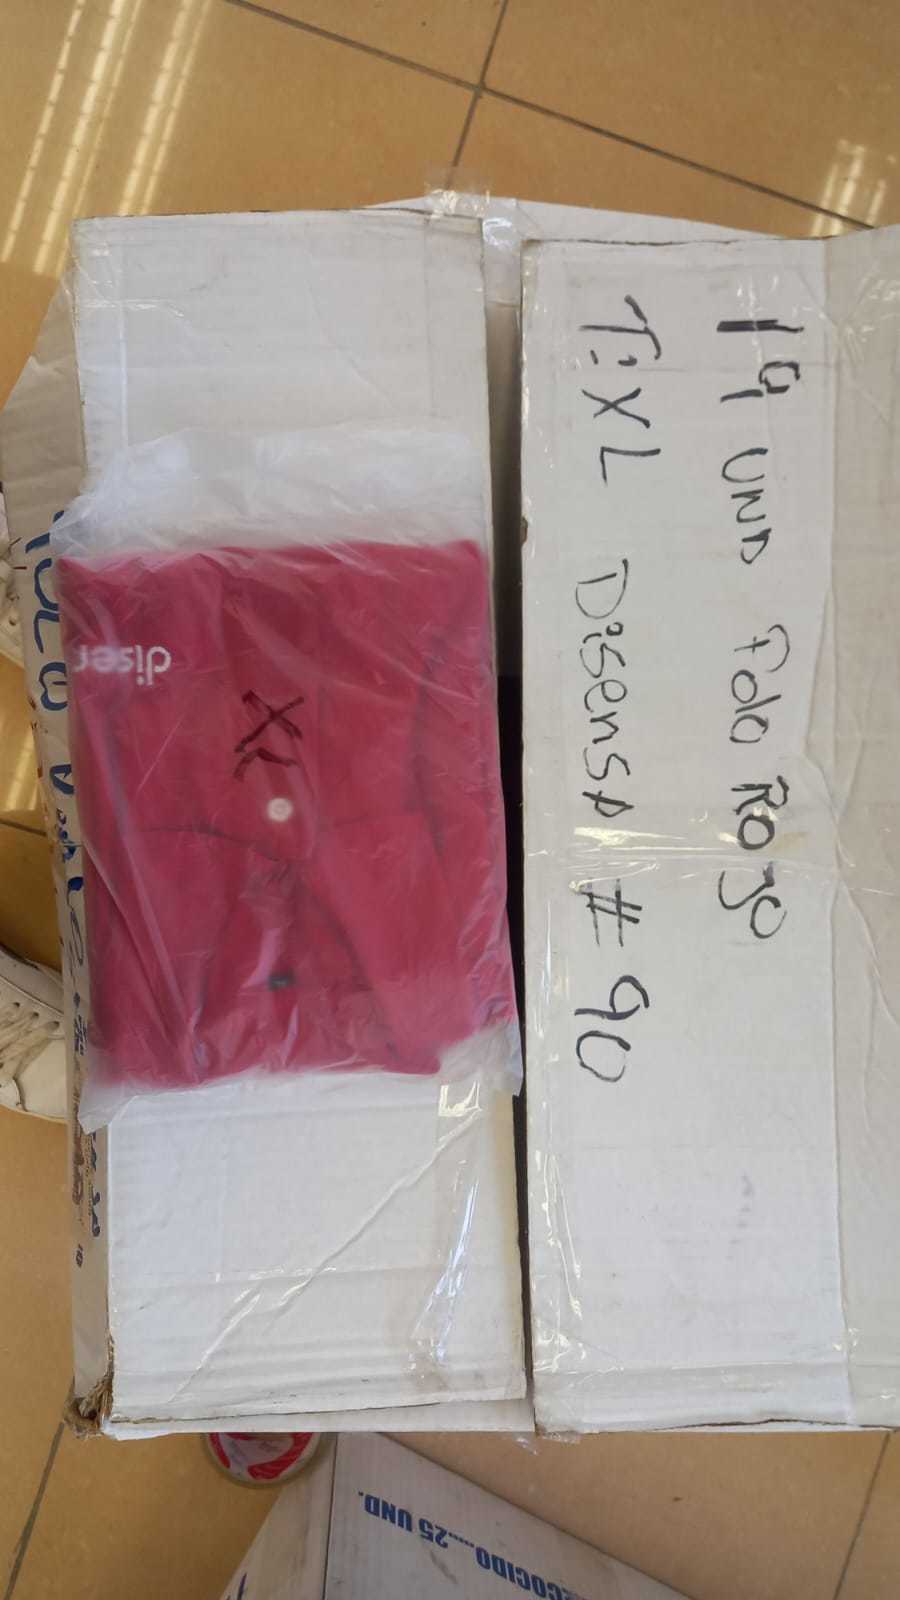 19 UND Polo Rojo
T: XL Disensa # 90
disen
XL
RECOCIDO....25 UND.